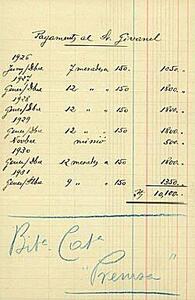 Pagaments al Sr. Givanel
1926
Juny/Dbre 7 mesades a 150. 1050.
1927
Gener/Dbre 12 " " 150. 1800.
1928
Gener/Dbre 12 " " 150 1800.
1929
Gener/Dbre 12 " " 150 1800.
Novbre 500.
1930
Gener/Dbre 12 mesades a 150 1800.
1931
Gener/Stbre 9 " " 150. 1350.
10,100.
Bita Cata
"Premsa"